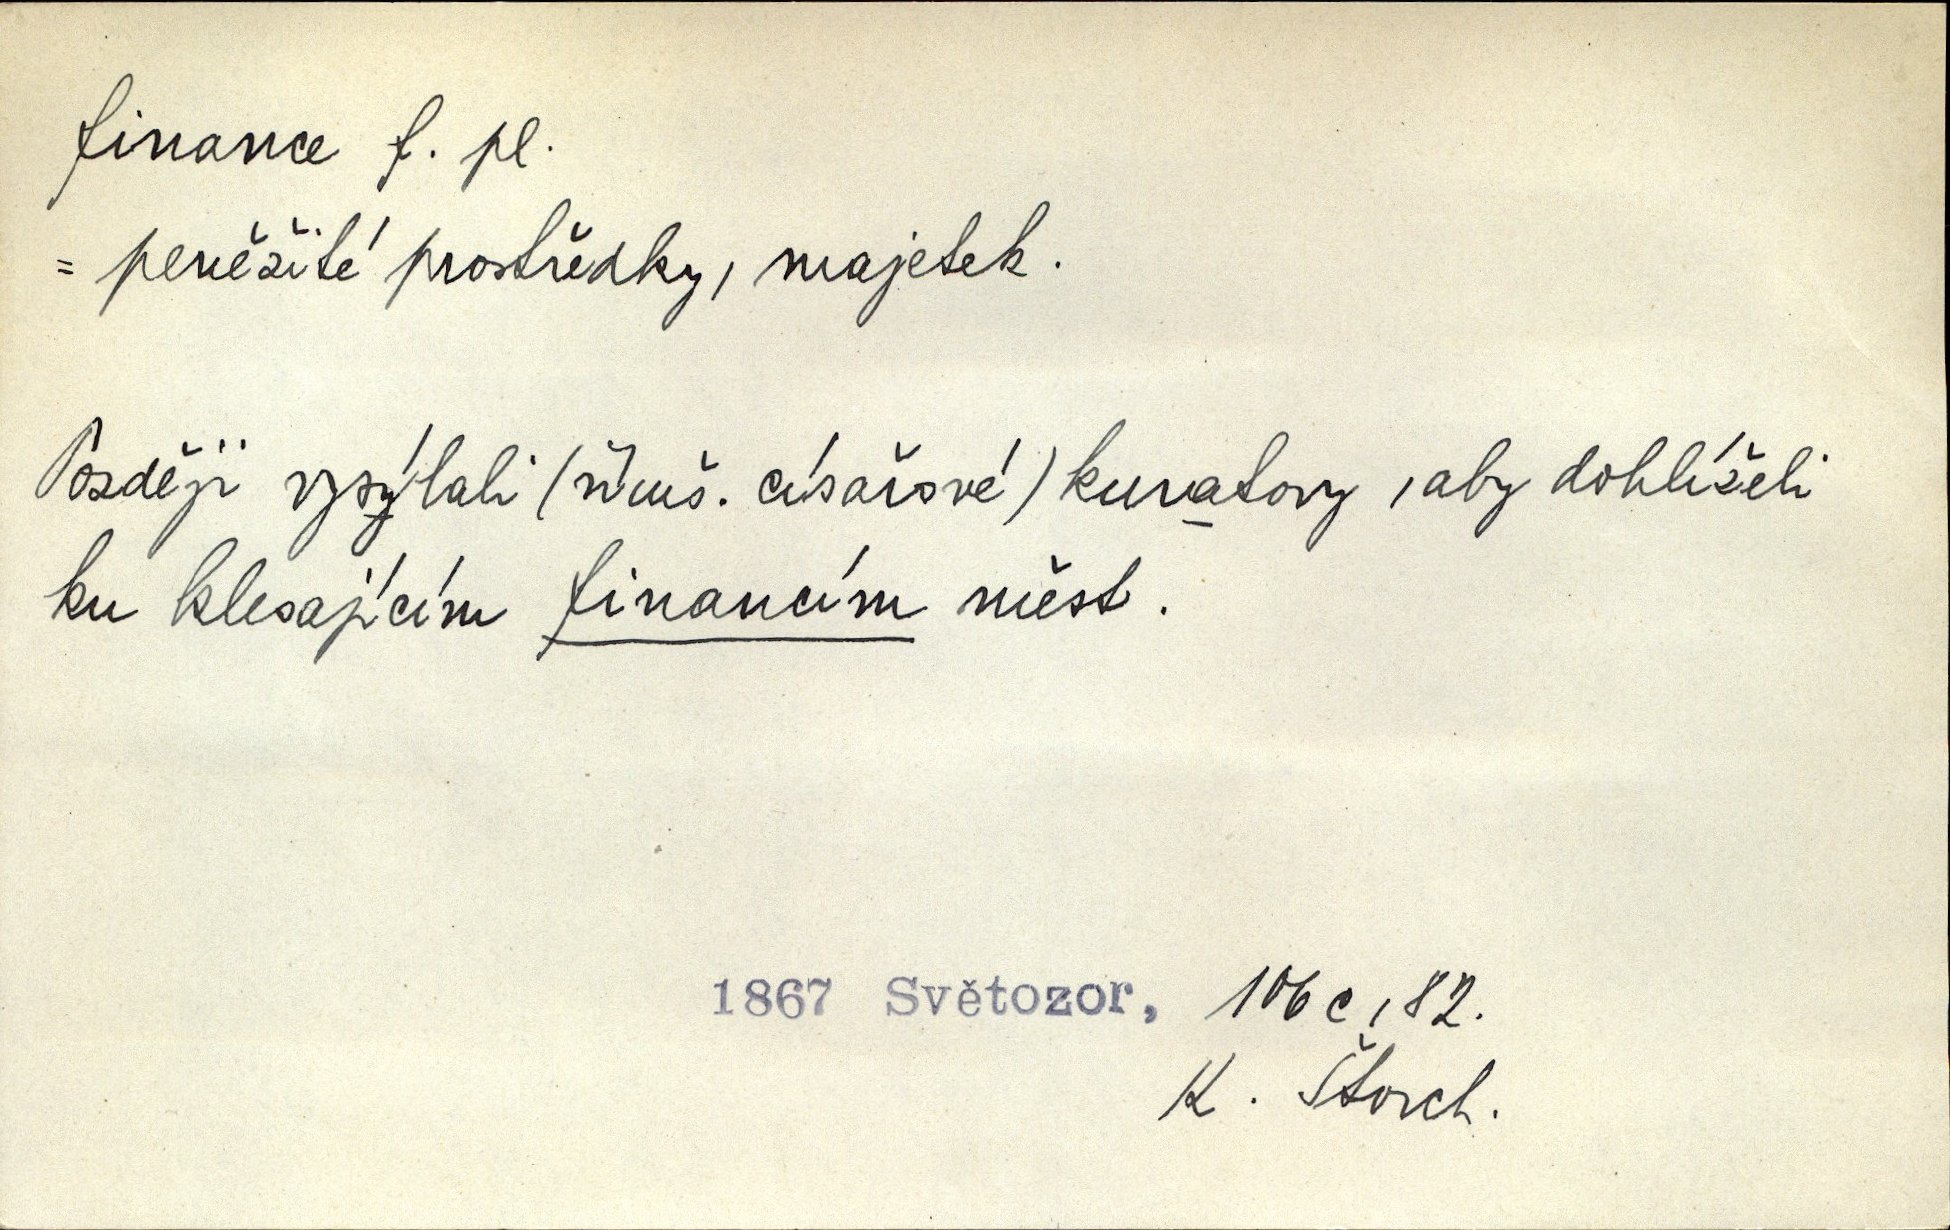 finance f. pl.
= peněžité prostředky, majetek.
Později vysýlali (římš. císařové) kuratory, aby dohlíželi
ku klesajícím financím měst.
1867 Světozor, 106c, 82.
K. Štorch.